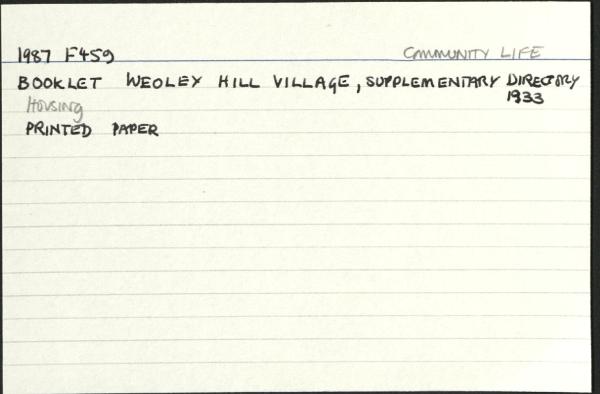 1987 F459 COMMUNITY LIFE
BOOKLET WEOLEY HILL VILLAGE, SUPPLEMENTARY DIRECTORY
1933
Housing
PRINTED PAPER